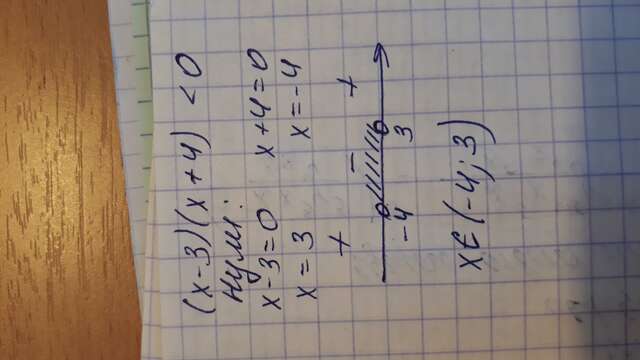 (x-3)(x+4) < 0
Нули:
x-3=0 x+4=0
x=3 x=-4
+ - +
-4 3
x∈(-4;3)